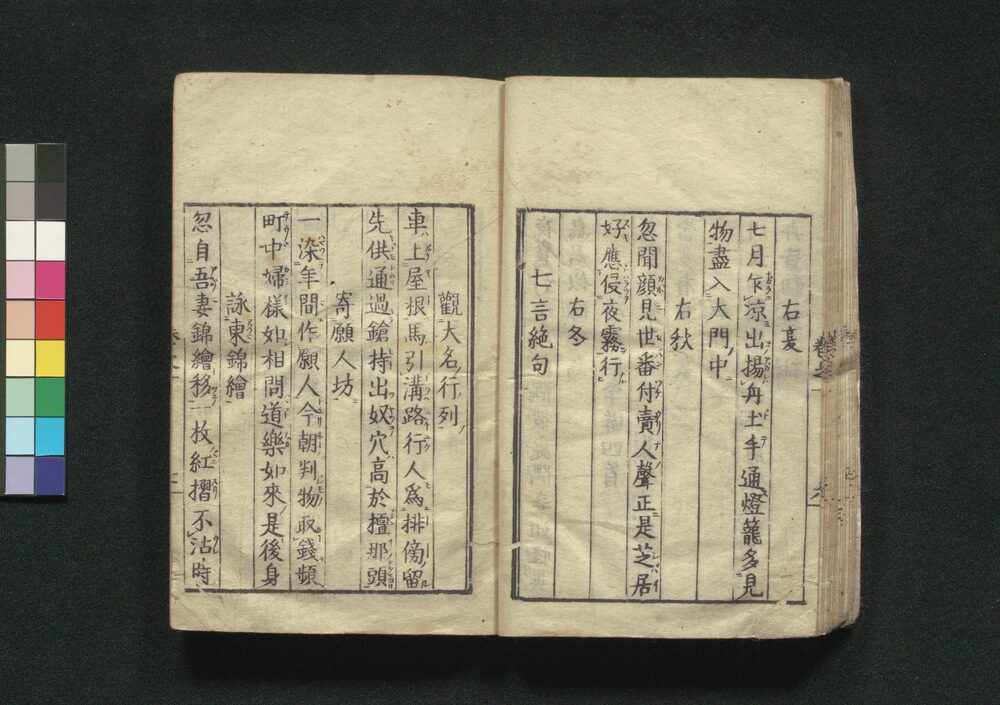 右夏
七月乍涼出揚舟土手通燈籠多見
物盡入大門中
右秋
忽聞顔見世番付賣人聲正是芝居
好應侵夜霧行
右冬
七言絶句
觀大名行列
車上屋根馬引溝路行人爲排傍留
先供通過鎗持出奴穴高於檀那頭
寄願人坊
一染年間作願人今朝判物取錢頻
町中婦様如相問道樂如來是後身
詠東錦繪
忽自吾妻錦繪移一枚紅摺不沽時